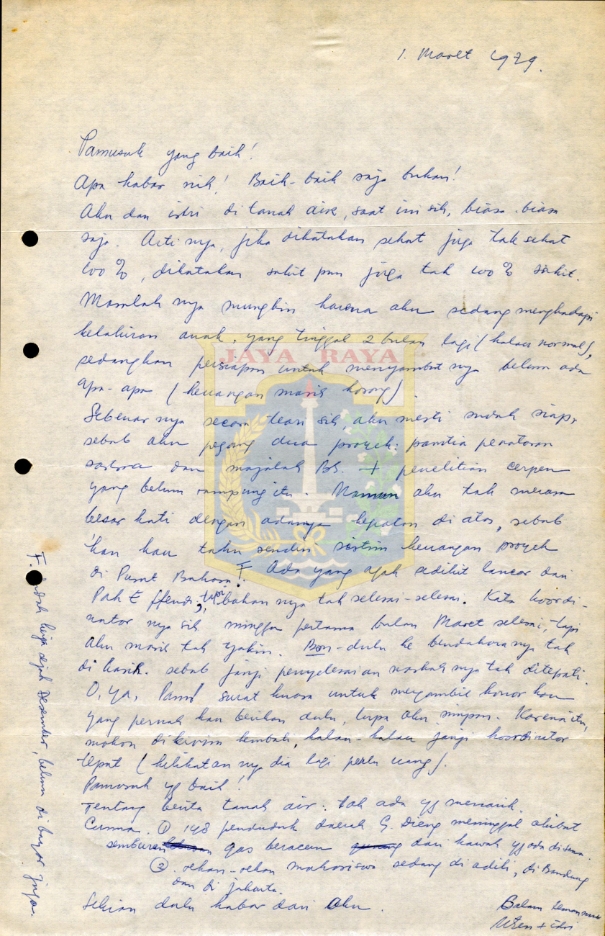 1 Maret 1979.
Pamusuk yang baik!
Apa kabar nih! Baik-baik saja bukan!
Aku dan istri di tanah air, saat ini sih, biasa-biasa
saja. Artinya, jika dikatakan sehat juga tak sehat
100%, dikatakan sakit pun juga tak 100% sakit.
Masalahnya mungkin karena aku sedang menghadapi
kelahiran anak, yang tinggal 2 bulan lagi (kalau normal),
sedangkan persiapan untuk menyambutnya belum ada
apa-apa (keuangan masih kosong).
JAYA RAYA
Sebenarnya secara teori sih, aku mesti sudah siap,
sebab aku pegang dua proyek: panitia penataran
sastra dan majalah BS + penelitian cerpen
yang belum rampung itu. Namun aku tak merasa
besar hati dengan adanya di atas, sebab
'kan kau tahu sendiri sistim keuangan proyek
di Pusat Bahasa. F. Ada yang agak sedikit lancar dari
Pak Effendi, tapi bahannya tak selesai-selesai. Kata koordi-
natornya sih minggu pertama bulan Maret selesai, tapi
aku masih tak yakin. dulu ke bendaharanya tak
dikasih. sebab janji penyelesaian naskahnya tak ditepati.
O, ya, surat kuasa untuk mengambil honor kau
yang pernah kau berikan dulu, lupa aku simpan. Karena itu
mohon dikirim kembali, kalau-kalau janji koordinator
tepat (kelihatannya dia lagi perlu uang).
Pamusuk yg baik!
Tentang berita tanah air. tak ada yg menarik.
Cuma. ① 148 penduduk daerah G. Dieng meninggal akibat
semburan gas beracun dari kawah yg ada di sana.
② rekan-rekan mahasiswa sedang diadili, di Bandung
dan di Jakarta.
Sekian dulu kabar dari aku.
Salam
+ istri
F. sejak Desember, belum dibayar juga.